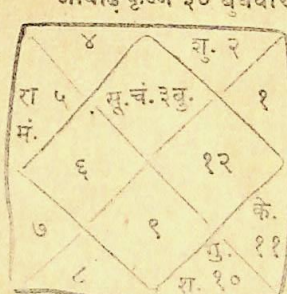 आषाढ़ कृष्ण ३० बुधवार
४ शु. २
रा ५ सू.चं. ३ बु. १
मं.
६ १२
के.
७ ९ गु. ११
८ श. १०